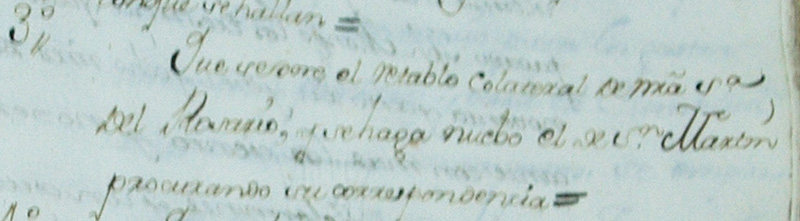 ongue se hallan =
3º
Que se dore el retablo colateral de nrã srª
del Rosario, y se haga nuebo el de Sn Martin
procurando su correspondencia =
4º